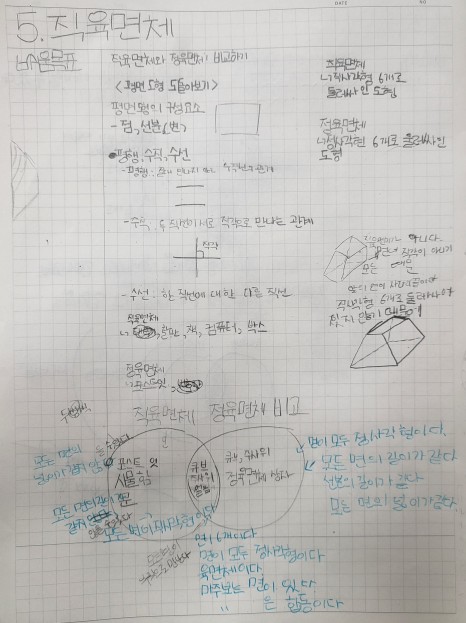 DATE
NO
5. 직육면체
배움목표
직육면체와 정육면체 비교하기
<평면 도형 되돌아보기>
평면도형의 구성요소
- 점, 선분(변)
직육면체
직사각형 6개로
둘러싸인 도형
정육면체
정사각형 6개로 둘러싸인
도형
평행, 수직, 수선
- 평행 : 만나지 않는 두 직선의 관계
- 수직 : 두 직선이 서로 직각으로 만나는 관계
직각
- 수선 : 한 직선에 대한 다른 직선
직육면체
칠판, 책, 컴퓨터, 박스
정육면체
포스트잇
직육면체가 아니다.
직각이 아니기
때문
직사각형 6개로 둘러싸여
있지 않기 때문에
직육면체 정육면체 비교
모든 면의
넓이가 같지 않
포스트 잇
사물함
큐브
주사위
큐브, 주사위
정육면체 상자
면이 모두 정사각형이다.
모든 면의 길이가 같다
선분의 길이가 같다
모든 면의 넓이가 같다.
모든 면의 길이가
같지
모든 면이 직사각형이다
면이 6개이다
면이 모두 정사각형이다
육면체이다
마주보는 면이 있다
〃 은 합동이다